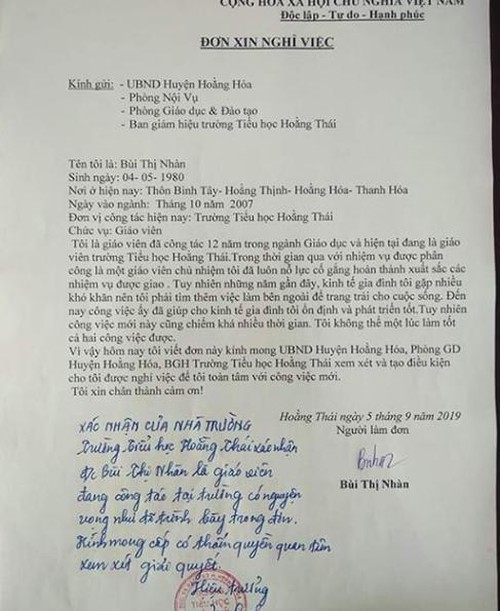 CỘNG HÒA XÃ HỘI CHỦ NGHĨA VIỆT NAM
Độc lập - Tự do - Hạnh phúc
ĐƠN XIN NGHỈ VIỆC
Kính gửi: - UBND Huyện Hoằng Hóa
- Phòng Nội Vụ
- Phòng Giáo dục & Đào tạo
- Ban giám hiệu trường Tiểu học Hoằng Thái
Tên tôi là: Bùi Thị Nhàn
Sinh ngày: 04- 05- 1980
Nơi ở hiện nay: Thôn Bình Tây- Hoằng Thịnh- Hoằng Hóa- Thanh Hóa
Ngày vào ngành: Tháng 10 năm 2007
Đơn vị công tác hiện nay: Trường Tiểu học Hoằng Thái
Chức vụ: Giáo viên
Tôi là giáo viên đã công tác 12 năm trong ngành Giáo dục và hiện tại đang là giáo
viên trường Tiểu học Hoằng Thái.Trong thời gian qua với nhiệm vụ được phân
công là một giáo viên chủ nhiệm tôi đã luôn nỗ lực cố gắng hoàn thành xuất sắc các
nhiệm vụ được giao . Tuy nhiên những năm gần đây, kinh tế gia đình tôi gặp nhiều
khó khăn nên tôi phải tìm thêm việc làm bên ngoài để trang trải cho cuộc sống. Đến
nay công việc ấy đã giúp cho kinh tế gia đình tôi ổn định và phát triển tốt.Tuy nhiên
công việc mới này cũng chiếm khá nhiều thời gian. Tôi không thể một lúc làm tốt
cả hai công việc được.
Vì vậy hôm nay tôi viết đơn này kính mong UBND Huyện Hoằng Hóa, Phòng GD
Huyện Hoằng Hóa, BGH Trường Tiểu học Hoằng Thái xem xét và tạo điều kiện
cho tôi được nghỉ việc để tôi toàn tâm với công việc mới.
Tôi xin chân thành cảm ơn!
Hoằng Thái ngày 5 tháng 9 năm 2019
Người làm đơn
Nhàn
Bùi Thị Nhàn
XÁC NHẬN CỦA NHÀ TRƯỜNG
Trường Tiểu học Hoằng Thái xác nhận
đ/c Bùi Thị Nhàn là giáo viên
đang công tác tại trường có nguyện
vọng như đã trình bày trong đơn.
Kính mong cấp có thẩm quyền quan tâm
xem xét giải quyết.
Hiệu trưởng
TIỂU HỌC